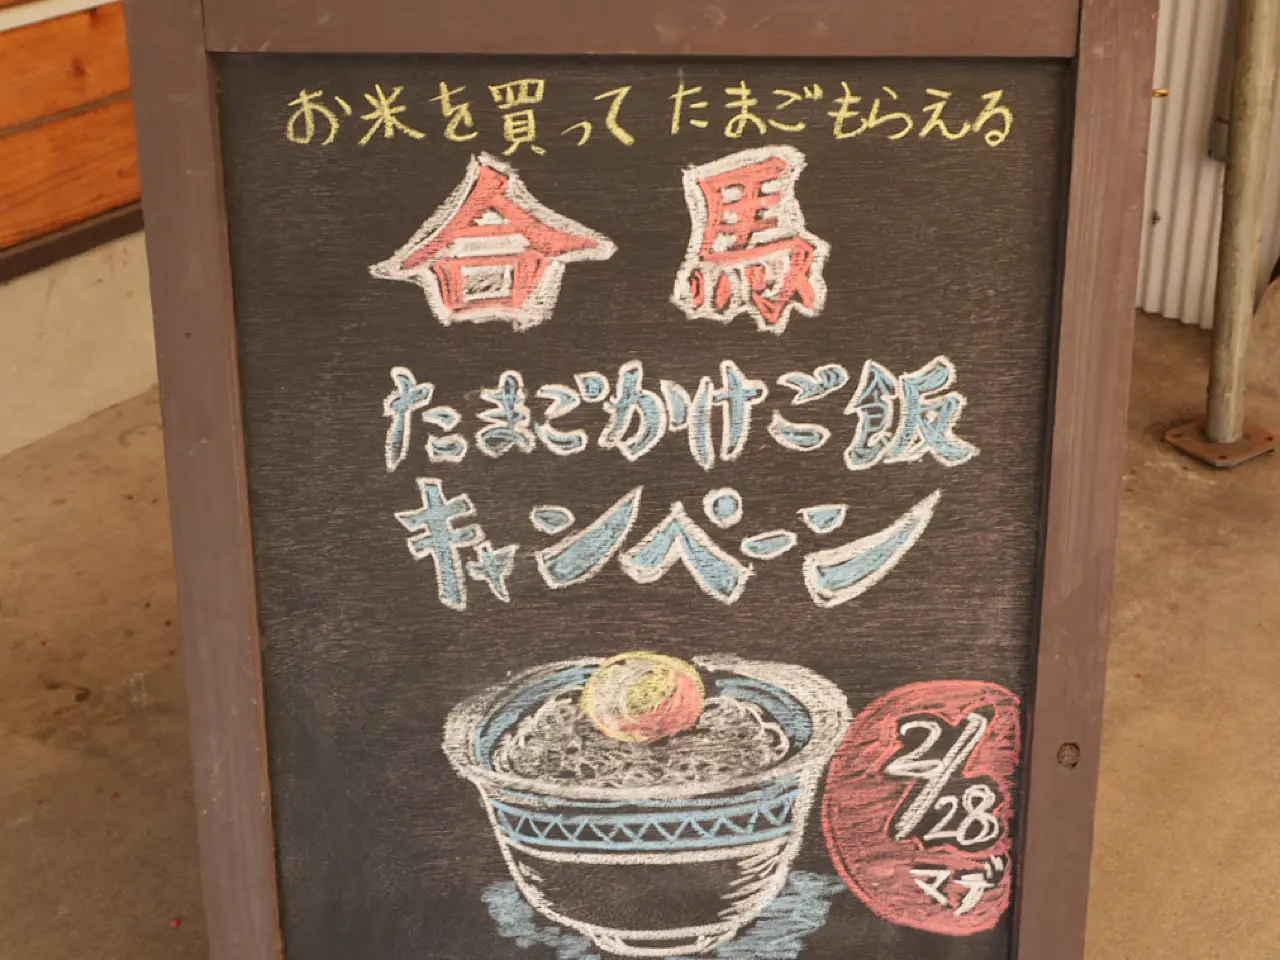 お米を買って たまごもらえる
合馬
たまごかけご飯
キャンペーン
2/28
マデ